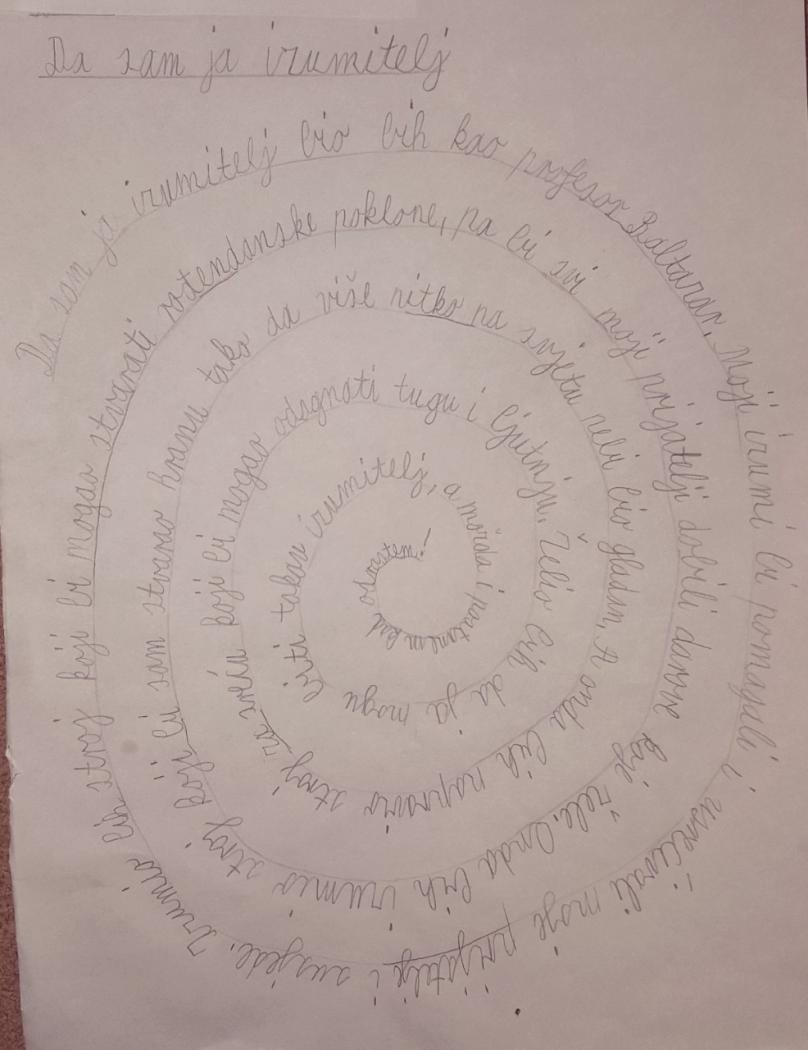 Da sam ja izumitelj
Da sam ja izumitelj bio bih kao profesor Baltazar. Moji izumi bi pomagali i usrećivali moje prijatelje i susjede. Izumio bih stroj koji bi mogao stvarati rođendanske poklone, pa bi svi moji prijatelji dobili darove koje žele. Onda bih izumio stroj koji bi sam stvarao hranu tako da više nitko na svijetu nebi bio gladan. A onda bih napravio stroj za sreću koji bi mogao odagnati tugu i ljutnju. Želio bih da ja mogu biti takav izumitelj, a možda i postanem kad odrastem!